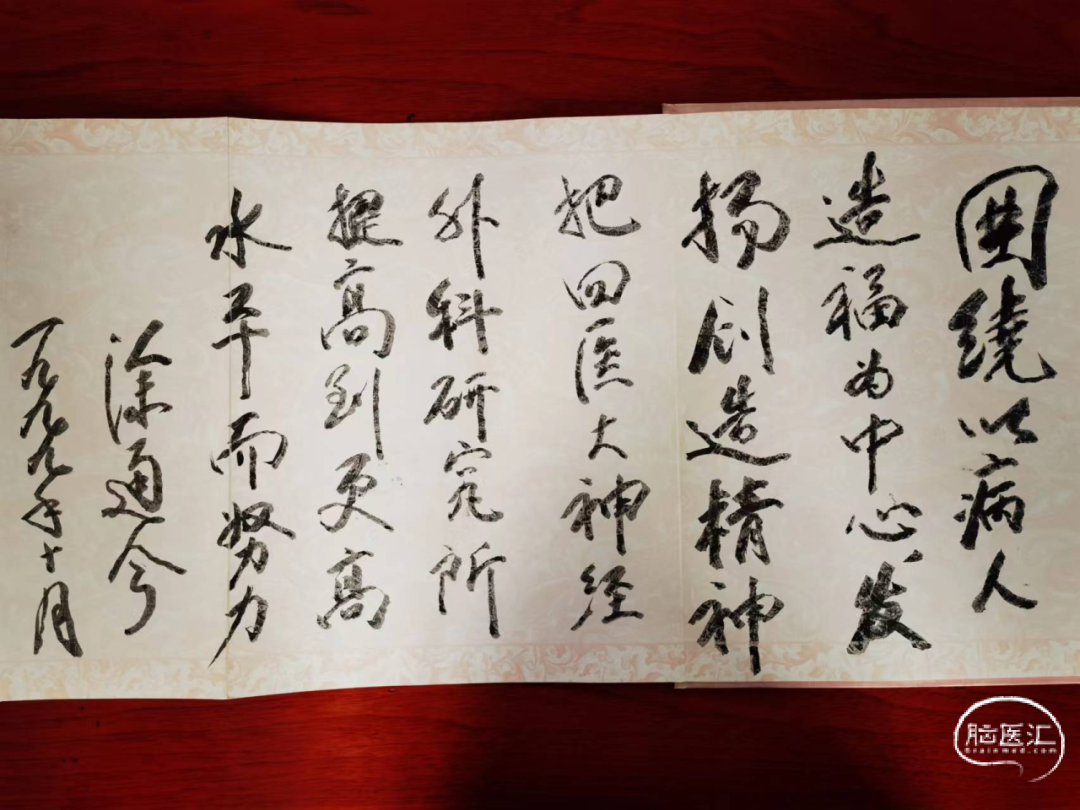 围绕以病人
造福为中心、发
扬创造精神
把四医大神经
外科研究所
提高到更高
水平而努力
涂通今
一九九九年十月
脑医汇
brainmed.com